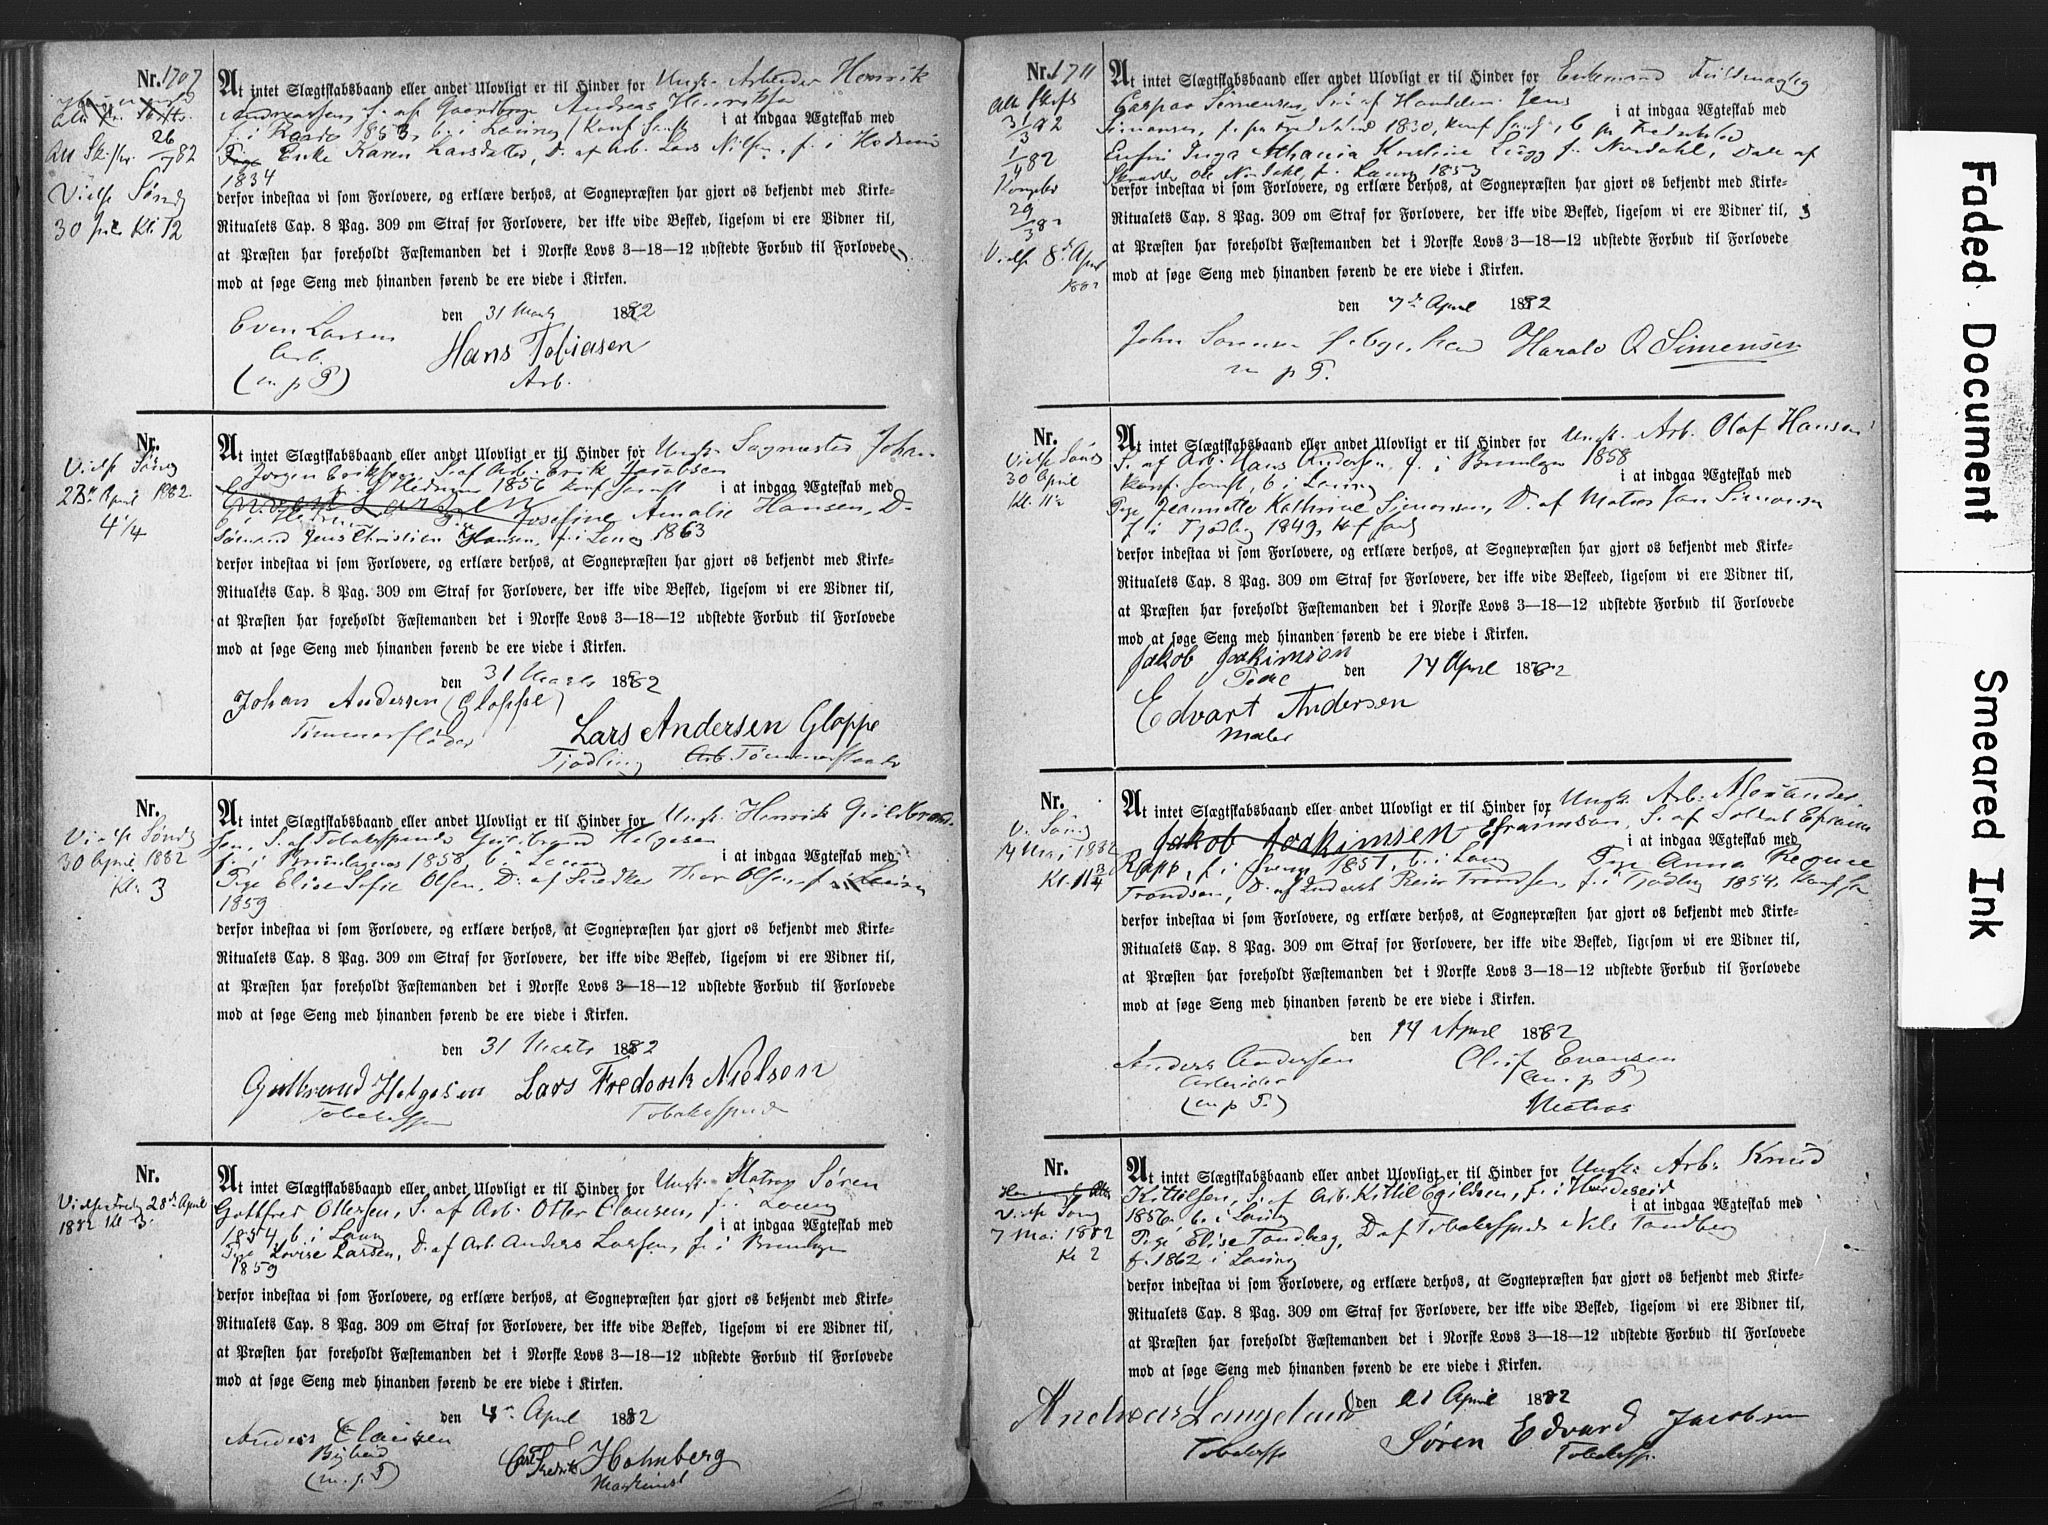 Nr. 1707
At intet Slægtskabsbaand eller andet Ulovligt er til Hinder for Ungk. Arbeider Henrik
Andreassen, S. af Andreas Henriksen
f. i 1853, b. i Laurvig, Konf. at indgaa Ægteskab med
Enke Karen Larsdatter, D. af Arb. Lars Nilsen, f. i Hedrum
1834
26/7 82
Vielse Sønd
30 Kl. 12
derfor indestaa vi som Forlovere, og erklære derhos, at Sognepræsten har gjort os bekjendt med Kirke-
Ritualets Cap. 8 Pag. 309 om Straf for Forlovere, der ikke vide Besked, ligesom vi ere Vidner til,
at Præsten har foreholdt Fæstemanden det i Norske Lovs 3—18—12 udstedte Forbud til Forlovede
mod at søge Seng med hinanden førend de ere viede i Kirken.
den 31 Marts 1882
Even Larsen
Arb.
(m. p. P)
Hans Tobiasen
Arb.
Nr.
Vielse Sønd
23 April 1882
4 1/4
At intet Slægtskabsbaand eller andet Ulovligt er til Hinder for Ungk. Sagmester Johan
Jørgen Eriksen S. af Arb. Erik Jacobsen
f. i Hedrum 1856 Konf. at indgaa Ægteskab med
Josefine Amalie Hansen, D.
Sømand Jens Christian Hansen, f. i Laurv 1863
derfor indestaa vi som Forlovere, og erklære derhos, at Sognepræsten har gjort os bekjendt med Kirke-
Ritualets Cap. 8 Pag. 309 om Straf for Forlovere, der ikke vide Besked, ligesom vi ere Vidner til,
at Præsten har foreholdt Fæstemanden det i Norske Lovs 3—18—12 udstedte Forbud til Forlovede
mod at søge Seng med hinanden førend de ere viede i Kirken.
den 31 Marts 1882
Johan Andersen (Gloppe)
Tømmerfløder
Lars Andersen Gloppe
Tjødling Arb.
Nr.
Vielse Sønd
30 April 1882
Kl. 3
At intet Slægtskabsbaand eller andet Ulovligt er til Hinder for Ungk. Henrik Guldbrand-
sen, S. af Tobakspinder Guldbrand Helgesen
f. i Brunlanes 1858, b. i Laurv at indgaa Ægteskab med
Pige Elise Sofie Olsen, D. af Snedker Thor Olsen, f. i Laurvig
1859
derfor indestaa vi som Forlovere, og erklære derhos, at Sognepræsten har gjort os bekjendt med Kirke-
Ritualets Cap. 8 Pag. 309 om Straf for Forlovere, der ikke vide Besked, ligesom vi ere Vidner til,
at Præsten har foreholdt Fæstemanden det i Norske Lovs 3—18—12 udstedte Forbud til Forlovede
mod at søge Seng med hinanden førend de ere viede i Kirken.
den 31 Marts 1882
Gulbrand Helgesen
Lars Frederik Nielsen
Nr.
Vielse Fredag 28de April
1882
At intet Slægtskabsbaand eller andet Ulovligt er til Hinder for Ungk. Matros Søren
Gotfred Ottersen, S. af Arb. Otter Clausen, f. i Laurvig
1854, b. i Laurv at indgaa Ægteskab med
Pige Lovise Larsen, D. af Arb. Anders Larsen, f. i Brunlanes
1859
derfor indestaa vi som Forlovere, og erklære derhos, at Sognepræsten har gjort os bekjendt med Kirke-
Ritualets Cap. 8 Pag. 309 om Straf for Forlovere, der ikke vide Besked, ligesom vi ere Vidner til,
at Præsten har foreholdt Fæstemanden det i Norske Lovs 3—18—12 udstedte Forbud til Forlovede
mod at søge Seng med hinanden førend de ere viede i Kirken.
den April 1882
Anders Clausen
(m. p. P)
Carl Fredrik Holmberg
Maskinist
Nr. 1711
1/4 82
29/3 82
Vielse 8de April
1882
At intet Slægtskabsbaand eller andet Ulovligt er til Hinder for Enkemand Fuldmægtig
Caspar Simensen, Søn af Handelsm. Jens
Simonsen, f. paa Fredrikstad 1830, Konf. b. paa Fredrikstad at indgaa Ægteskab med
Inga Athania Kristine f. Nordahl, Datt. af
Skrædder Ole Nordahl, f. Laurv 1853
derfor indestaa vi som Forlovere, og erklære derhos, at Sognepræsten har gjort os bekjendt med Kirke-
Ritualets Cap. 8 Pag. 309 om Straf for Forlovere, der ikke vide Besked, ligesom vi ere Vidner til,
at Præsten har foreholdt Fæstemanden det i Norske Lovs 3—18—12 udstedte Forbud til Forlovede
mod at søge Seng med hinanden førend de ere viede i Kirken.
den 7de April 1882
John
m p P.
Harald O Simensen
Nr.
Vielse Sønd
30 April
Kl. 11½
At intet Slægtskabsbaand eller andet Ulovligt er til Hinder for Ungk. Arb. Olaf Hansen
S. af Arb. Hans Andersen, f. i Brunlanes 1858
Konf. b. i Laurvig at indgaa Ægteskab med
Pige Jeannette Kathrine Simonsen, D. af Matros Jan Simonsen
f. i Tjødling 1849, Konf.
derfor indestaa vi som Forlovere, og erklære derhos, at Sognepræsten har gjort os bekjendt med Kirke-
Ritualets Cap. 8 Pag. 309 om Straf for Forlovere, der ikke vide Beskeed, ligesom vi ere Vidner til,
at Præsten har foreholdt Fæstemanden det i Norske Lovs 3—18—12 udstedte Forbud til Forlovede
mod at søge Seng med hinanden førend de ere viede i Kirken.
Jakob Joakimsen den 14 April 1882
Edvart Andersen
Maler
Nr.
V. Sønd
14 Mai 1882
Kl. 11 3/4
At intet Slægtskabsbaand eller andet Ulovligt er til Hinder for Ungk. Arb. Alexander
Jakob Joakimsen Efraimsen, S. af Soldat Efraim
Rapp, f. i Sverige 1851, b. i Laurvig at indgaa Ægteskab med Pige Anna Regine
Trondsen, D. af Reier Trondsen, f. i Tjødling 1854, Konf.
derfor indestaa vi som Forlovere, og erklære derhos, at Sognepræsten har gjort os bekjendt med Kirke-
Ritualets Cap. 8 Pag. 309 om Straf for Forlovere, der ikke vide Besked, ligesom vi ere Vidner til,
at Præsten har foreholdt Fæstemanden det i Norske Lovs 3—18—12 udstedte Forbud til Forlovede
mod at søge Seng med hinanden førend de ere viede i Kirken.
den 14 April 1882
Anders Andersen
Arbeider
(m p P.)
Oluf Evensen
(m. p P)
Matros
Nr.
Vielse Sønd
7 Mai 1882
Kl 2
At intet Slægtskabsbaand eller andet Ulovligt er til Hinder for Ungk. Arb. Knud
Kittilsen, S. af Arb. Kittil Egildsen, f. i Hvideseid
1856, b. i Laurvig at indgaa Ægteskab med
Pige Elise Tandberg, D. af Tobakspinder Nils Tandberg
f. 1862 i Laurvig
derfor indestaa vi som Forlovere, og erklære derhos, at Sognepræsten har gjort os bekjendt med Kirke-
Ritualets Cap. 8 Pag. 309 om Straf for Forlovere, der ikke vide Besked, ligesom vi ere Vidner til,
at Præsten har foreholdt Fæstemanden det i Norske Lovs 3—18—12 udstedte Forbud til Forlovede
mod at søge Seng med hinanden førend de ere viede i Kirken.
Andreas Langeland den 21 April 1882
Søren Edvard Jacobsen
Faded Document
Smeared Ink